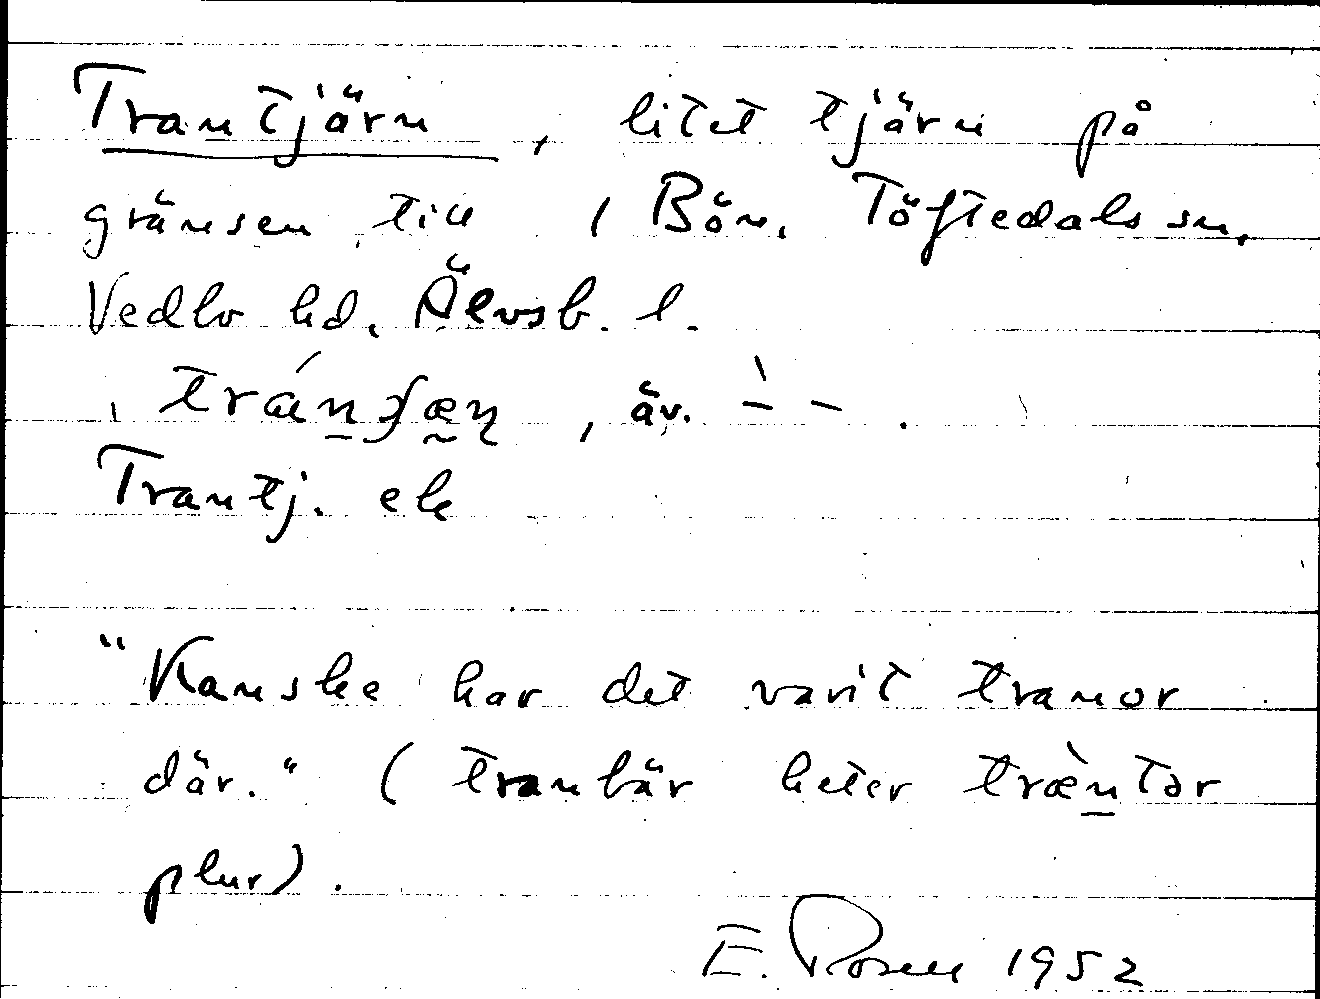 Trantjärn, litet tjärn på
gränsen till 1 Bön, Töftedals sn,
Vedbo hd, Älvsb. l.
trán̠ʃæ̰ɳ, äv. –̀ – .
Trantj. ek
"Kanske har det varit tranor
där." (tranbär heter træ̀n̠tər
plur).
E. Rosell 1952